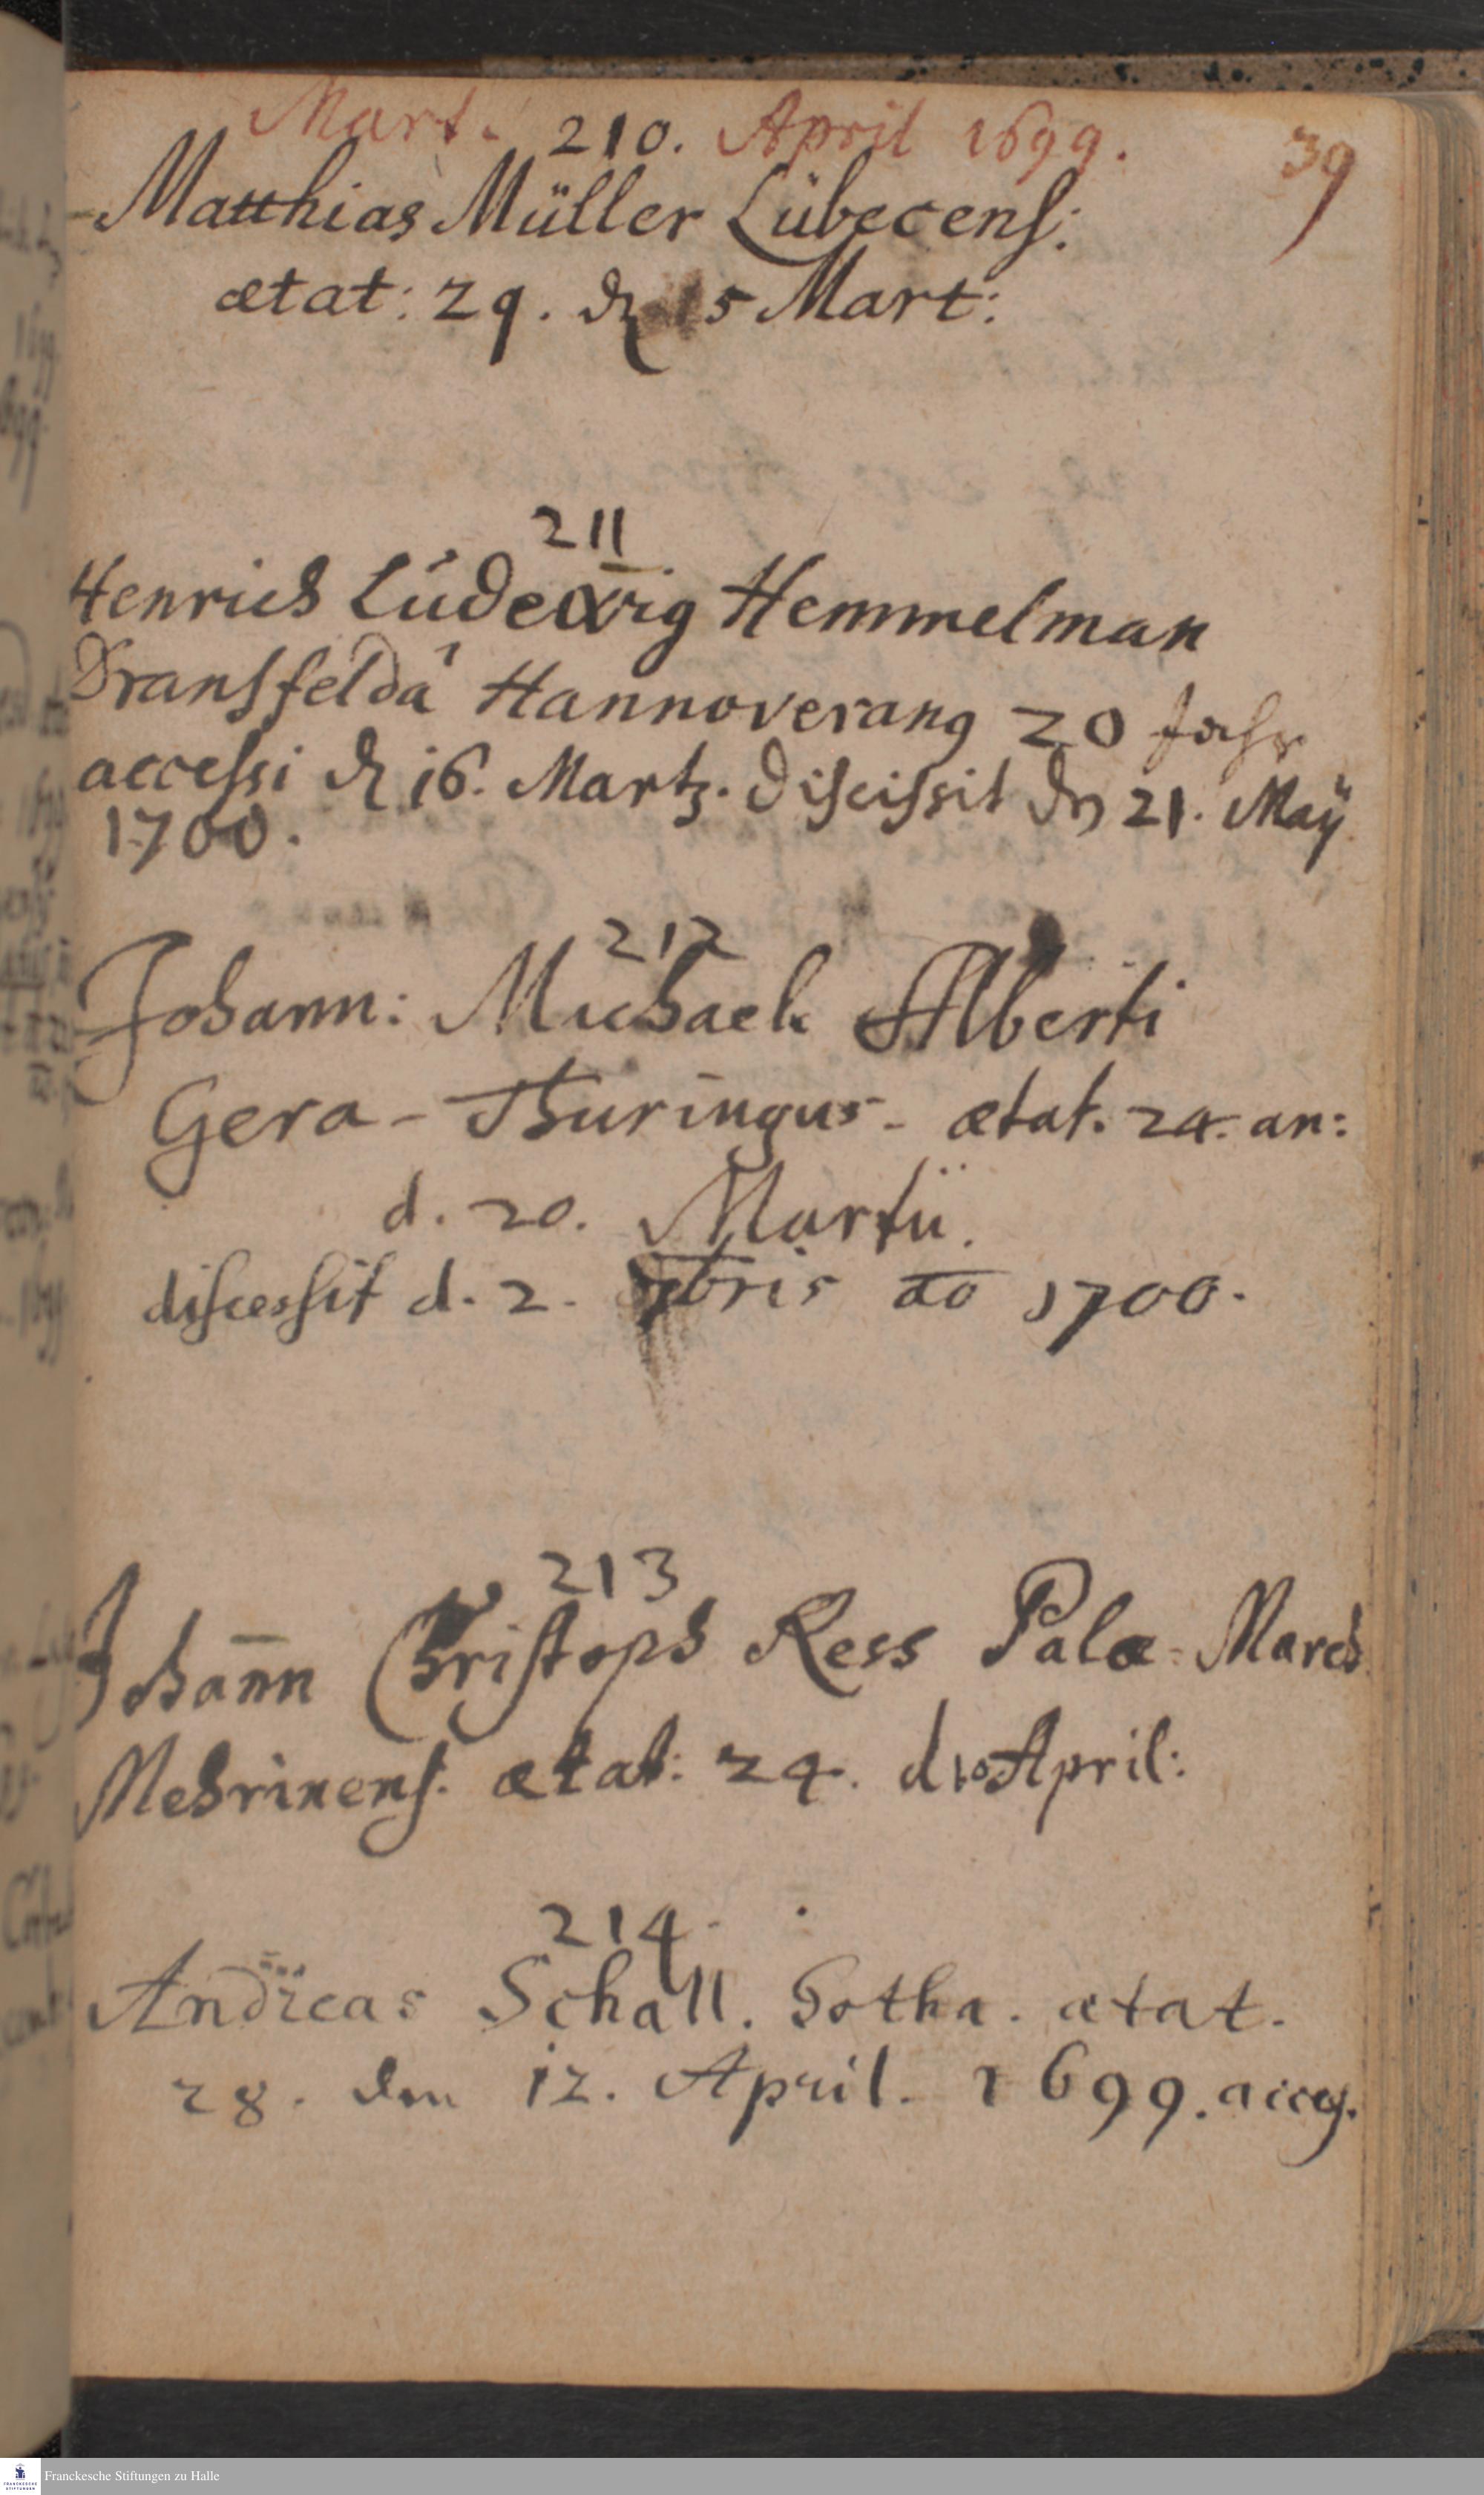 Mart. 210. April 1699. 39
Matthias Müller Lübecens:
ætat: 29. dn 15 Mart:
211
Henrich Lúdewig Hemmelman
Dransfeldâ Hannoveranq 20 Jahr
accessi dn 16. Martz. discissit dn 21. Maÿ
1700.
212
Johann: Michael Alberti
Gera-Thuringus- ætat. 24. an:
d. 20. Martii.
discessit d. 2. 7bris ao 1700.
213
Johann Christoph Ress Palæ-March
Mehrinens. ætat: 24. d. 10 April:
214.
Andreas Schall. Gotha. ætat.
28. den 12. April. 1699. acces.
Franckesche Stiftungen zu Halle
FRANCKESCHE
STIFTUNGEN